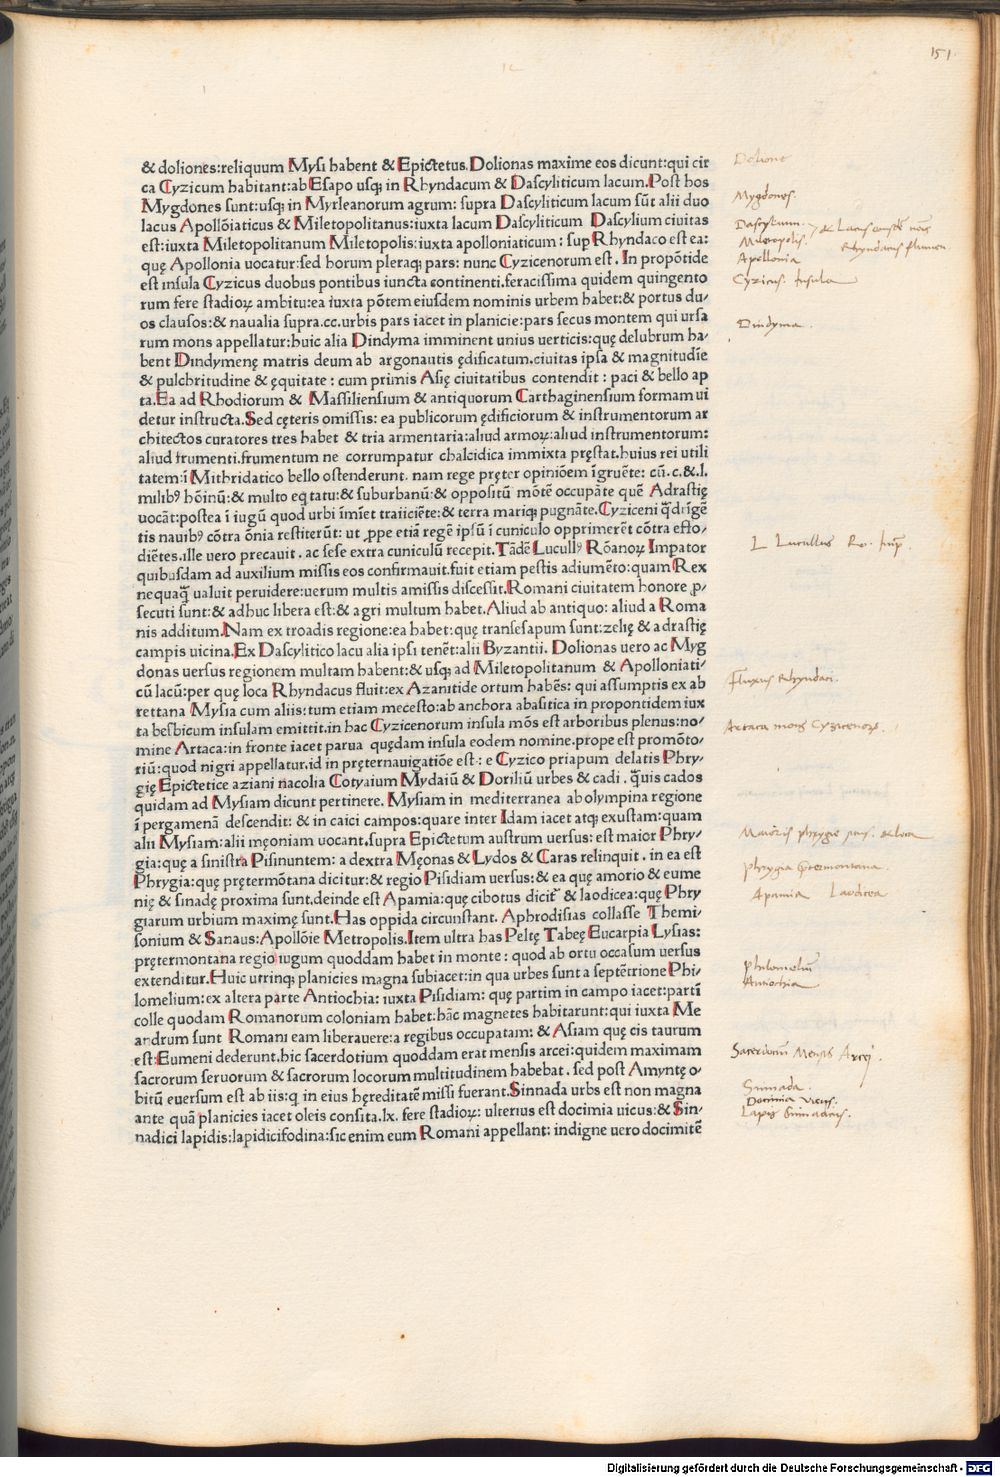 151
& doliones:reliquum Mysi habent & Epictetus. Dolionas maxime eos dicunt:qui cir
ca Cyzicum habitant:ab Esapo usq; in Rhyndacum & Dascyliticum lacum. Post hos
Mygdones sunt:usq; in Myrleanorum agrum: supra Dascyliticum lacum sūt alii duo
lacus Apollōiaticus & Miletopolitanus:iuxta lacum Dascyliticum Dascylium ciuitas
est:iuxta Miletopolitanum Miletopolis:iuxta apolloniaticum: sup Rhyndaco est ea:
quę Apollonia uocatur:sed horum pleraq; pars: nunc Cyzicenorum est. In propōtide
est insula Cyzicus duobus pontibus iuncta continenti.feracissima quidem quingento
rum fere stadioꝝ ambitu:ea iuxta pōtem eiusdem nominis urbem habet:& portus du/
os clausos:& naualia supra.cc.urbis pars iacet in planicie:pars secus montem qui ursa
rum mons appellatur:huic alia Dindyma imminent unius uerticis:quę delubrum ha/
bent Dindymenę matris deum ab argonautis ędificatum.ciuitas ipsa & magnitudīe
& pulchritudine & ęquitate: cum primis Asię ciuitatibus contendit: paci & bello ap
ta.Ea ad Rhodiorum & Massiliensium & antiquorum Carthaginensium formam ui
detur instructa.Sed cęteris omissis: ea publicorum ędificiorum & instrumentorum ar
chitectos curatores tres habet & tria armentaria:aliud armoꝝ:aliud instrumentorum:
aliud frumenti.frumentum ne corrumpatur chalcidica immixta pręstat.huius rei utili
tatem:ī Mithridatico bello ostenderunt. nam rege pręter opiniōem īgruēte: cū.c.&.l.
milibꝰ hōinū:& multo eq tatu:& suburbanū:& oppositū mōtē occupāte quē Adrastię
uocāt:postea ī iugū quod urbi īmīet traiiciēte:& terra mariq; pugnāte.Cyziceni q̄drīgē
tis nauibꝰ cōtra ōnia restiterūt: ut ꝓpe etiā regē ipsū ī cuniculo opprimerēt cōtra effo/
diētes.ille uero precauit. ac sese extra cuniculū recepit.Tādē Lucullꝰ Rōanoꝝ Impator
quibusdam ad auxilium missis eos confirmauit.fuit etiam pestis adiumēto:quam Rex
nequaq̄ ualuit peruidere:uerum multis amissis discessit.Romani ciuitatem honore ꝓ/
secuti sunt:& adhuc libera est:& agri multum habet.Aliud ab antiquo: aliud a Roma
nis additum.Nam ex troadis regione:ea habet:quę transesapum sunt:zelię & adrastię
campis uicina.Ex Dascylitico lacu alia ipsi tenēt:alii Byzantii. Dolionas uero ac Myg
donas uersus regionem multam habent:& usq; ad Miletopolitanum & Apolloniati/
cū lacū:per quę loca Rhyndacus fluit:ex Azanitide ortum habēs: qui assumptis ex ab
rettana Mysia cum aliis:tum etiam mecesto:ab anchora abasitica in propontidem iux
ta besbicum insulam emittit.in hac Cyzicenorum insula mōs est arboribus plenus:no/
mine Artaca:in fronte iacet parua quędam insula eodem nomine.prope est promōto/
riū:quod nigri appellatur.id in pręternauigatiōe est: e Cyzico priapum delatis Phry/
gię Epictetice aziani nacolia Cotyaium Mydaiū & Doriliū urbes & cadi. q̄uis cados
quidam ad Mysiam dicunt pertinere. Mysiam in mediterranea ab olympina regione
ī pergamenā descendit: & in caici campos:quare inter Idam iacet atq; exustam:quam
alii Mysiam:alii męoniam uocant.supra Epictetum austrum uersus: est maior Phry/
gia:quę a sinistra Pisinuntem: a dextra Męonas & Lydos & Caras relinquit. in ea est
Phrygia:quę prętermōtana dicitur:& regio Pisidiam uersus:& ea quę amorio & eume
nię & sinadę proxima sunt.deinde est Apamia:quę cibotus dicit̄ & laodicea:quę Phry
giarum urbium maximę sunt.Has oppida circunstant. Aphrodisias collasse Themi/
sonium & Sanaus:Apollōie Metropolis.Item ultra has Peltę Tabeę Eucarpia Lysias:
prętermontana regio iugum quoddam habet in monte: quod ab ortu occasum uersus
extenditur.Huic utrinq; planicies magna subiacet:in qua urbes sunt a septētrione Phi/
lomelium:ex altera parte Antiochia: iuxta Pisidiam: quę partim in campo iacet:partī
colle quodam Romanorum coloniam habet:hāc magnetes habitarunt:qui iuxta Me
andrum sunt Romani eam liberauere:a regibus occupatam: & Asiam quę cis taurum
est:Eumeni dederunt.hic sacerdotium quoddam erat mensis arcei:quidem maximam
sacrorum seruorum & sacrorum locorum multitudinem habebat. sed post Amyntę o/
bitū euersum est ab iis:q in eius hęreditatē missi fuerant.Sinnada urbs est non magna
ante quā planicies iacet oleis consita.lx. fere stadioꝝ: ulterius est docimia uicus:& Sin/
nadici lapidis:lapidicifodina:sic enim eum Romani appellant: indigne uero docimitē
Dolione
Mygdones.
Dascylium.
Miletopolis.
Rhyndacus flumen
Apollonia
Cyzicus. Insula
Dindyma.
L Lucullus Ro. Imp.
Fluxus Rhyndaci.
Artaca mons Cyzicenoꝝ.
Maioris phrygie
phrygia p̄termontana.
Apamia Laodicea
philomeliū
Antiochia
Sacerdotiū Mensis Arcei.
Sinnada.
Docimia vicus.
Lapis Sinnadicus.
Digitalisierung gefördert durch die Deutsche Forschungsgemeinschaft - DFG